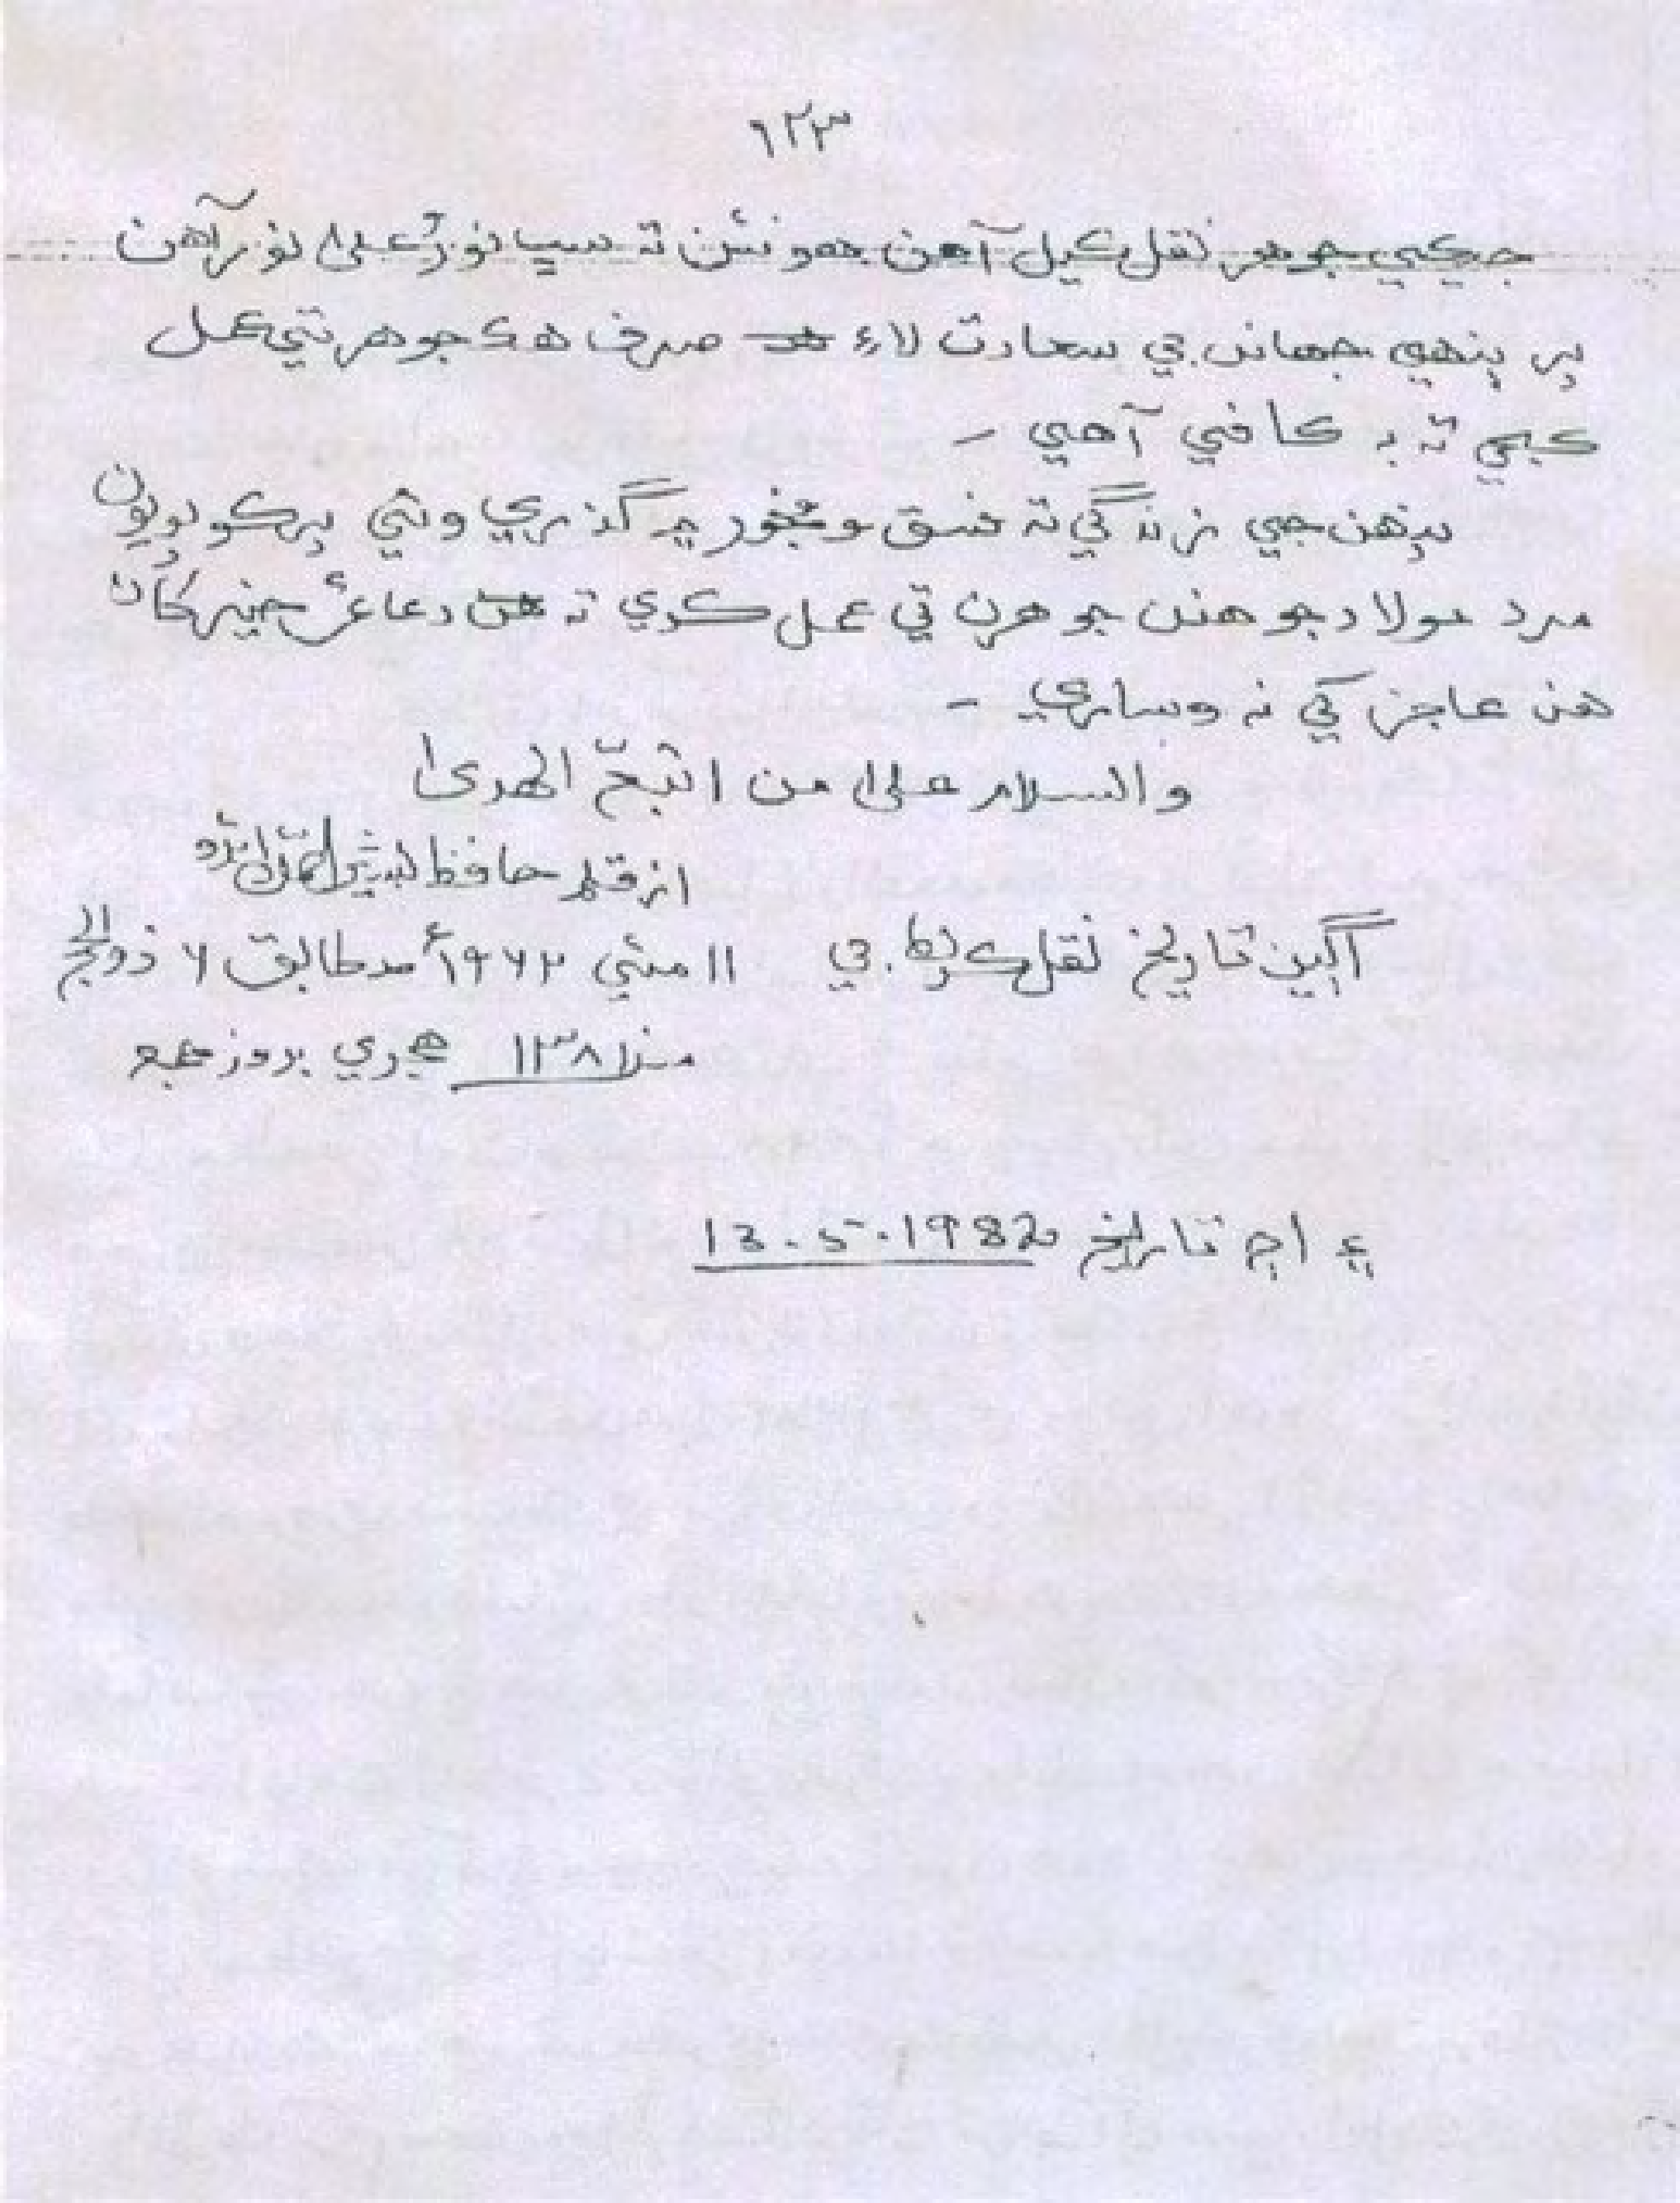 ١٢٣
جيڪي جوهر نقل ڪيل آهن جهونئن ته سڀ نورُ عليٰ نور آهن
پر ٻنهي جهانن جي سعادت لاءِ صرف هڪ جوهر تي عمل
ڪجي ته به ڪافي آهي -
پنهن جي زندگي ته فسق و فجور ۾ گذري وئي پر ڪو
مرد مولا جو هنن جوهرن تي عمل ڪري ته دعاءِ خير کان
هن عاجز کي نه وساري -
والسلام علىٰ من اتبع الهدىٰ
از قلم حافظ
اڳين تاريخ نقل ڪرڻ جي ١١ مئي ١٩٦٢ع مطابق ٦ ذوالحج
١٣٨١ هجري بروز جمع
۽ اڄ تاريخ 13.5.1982